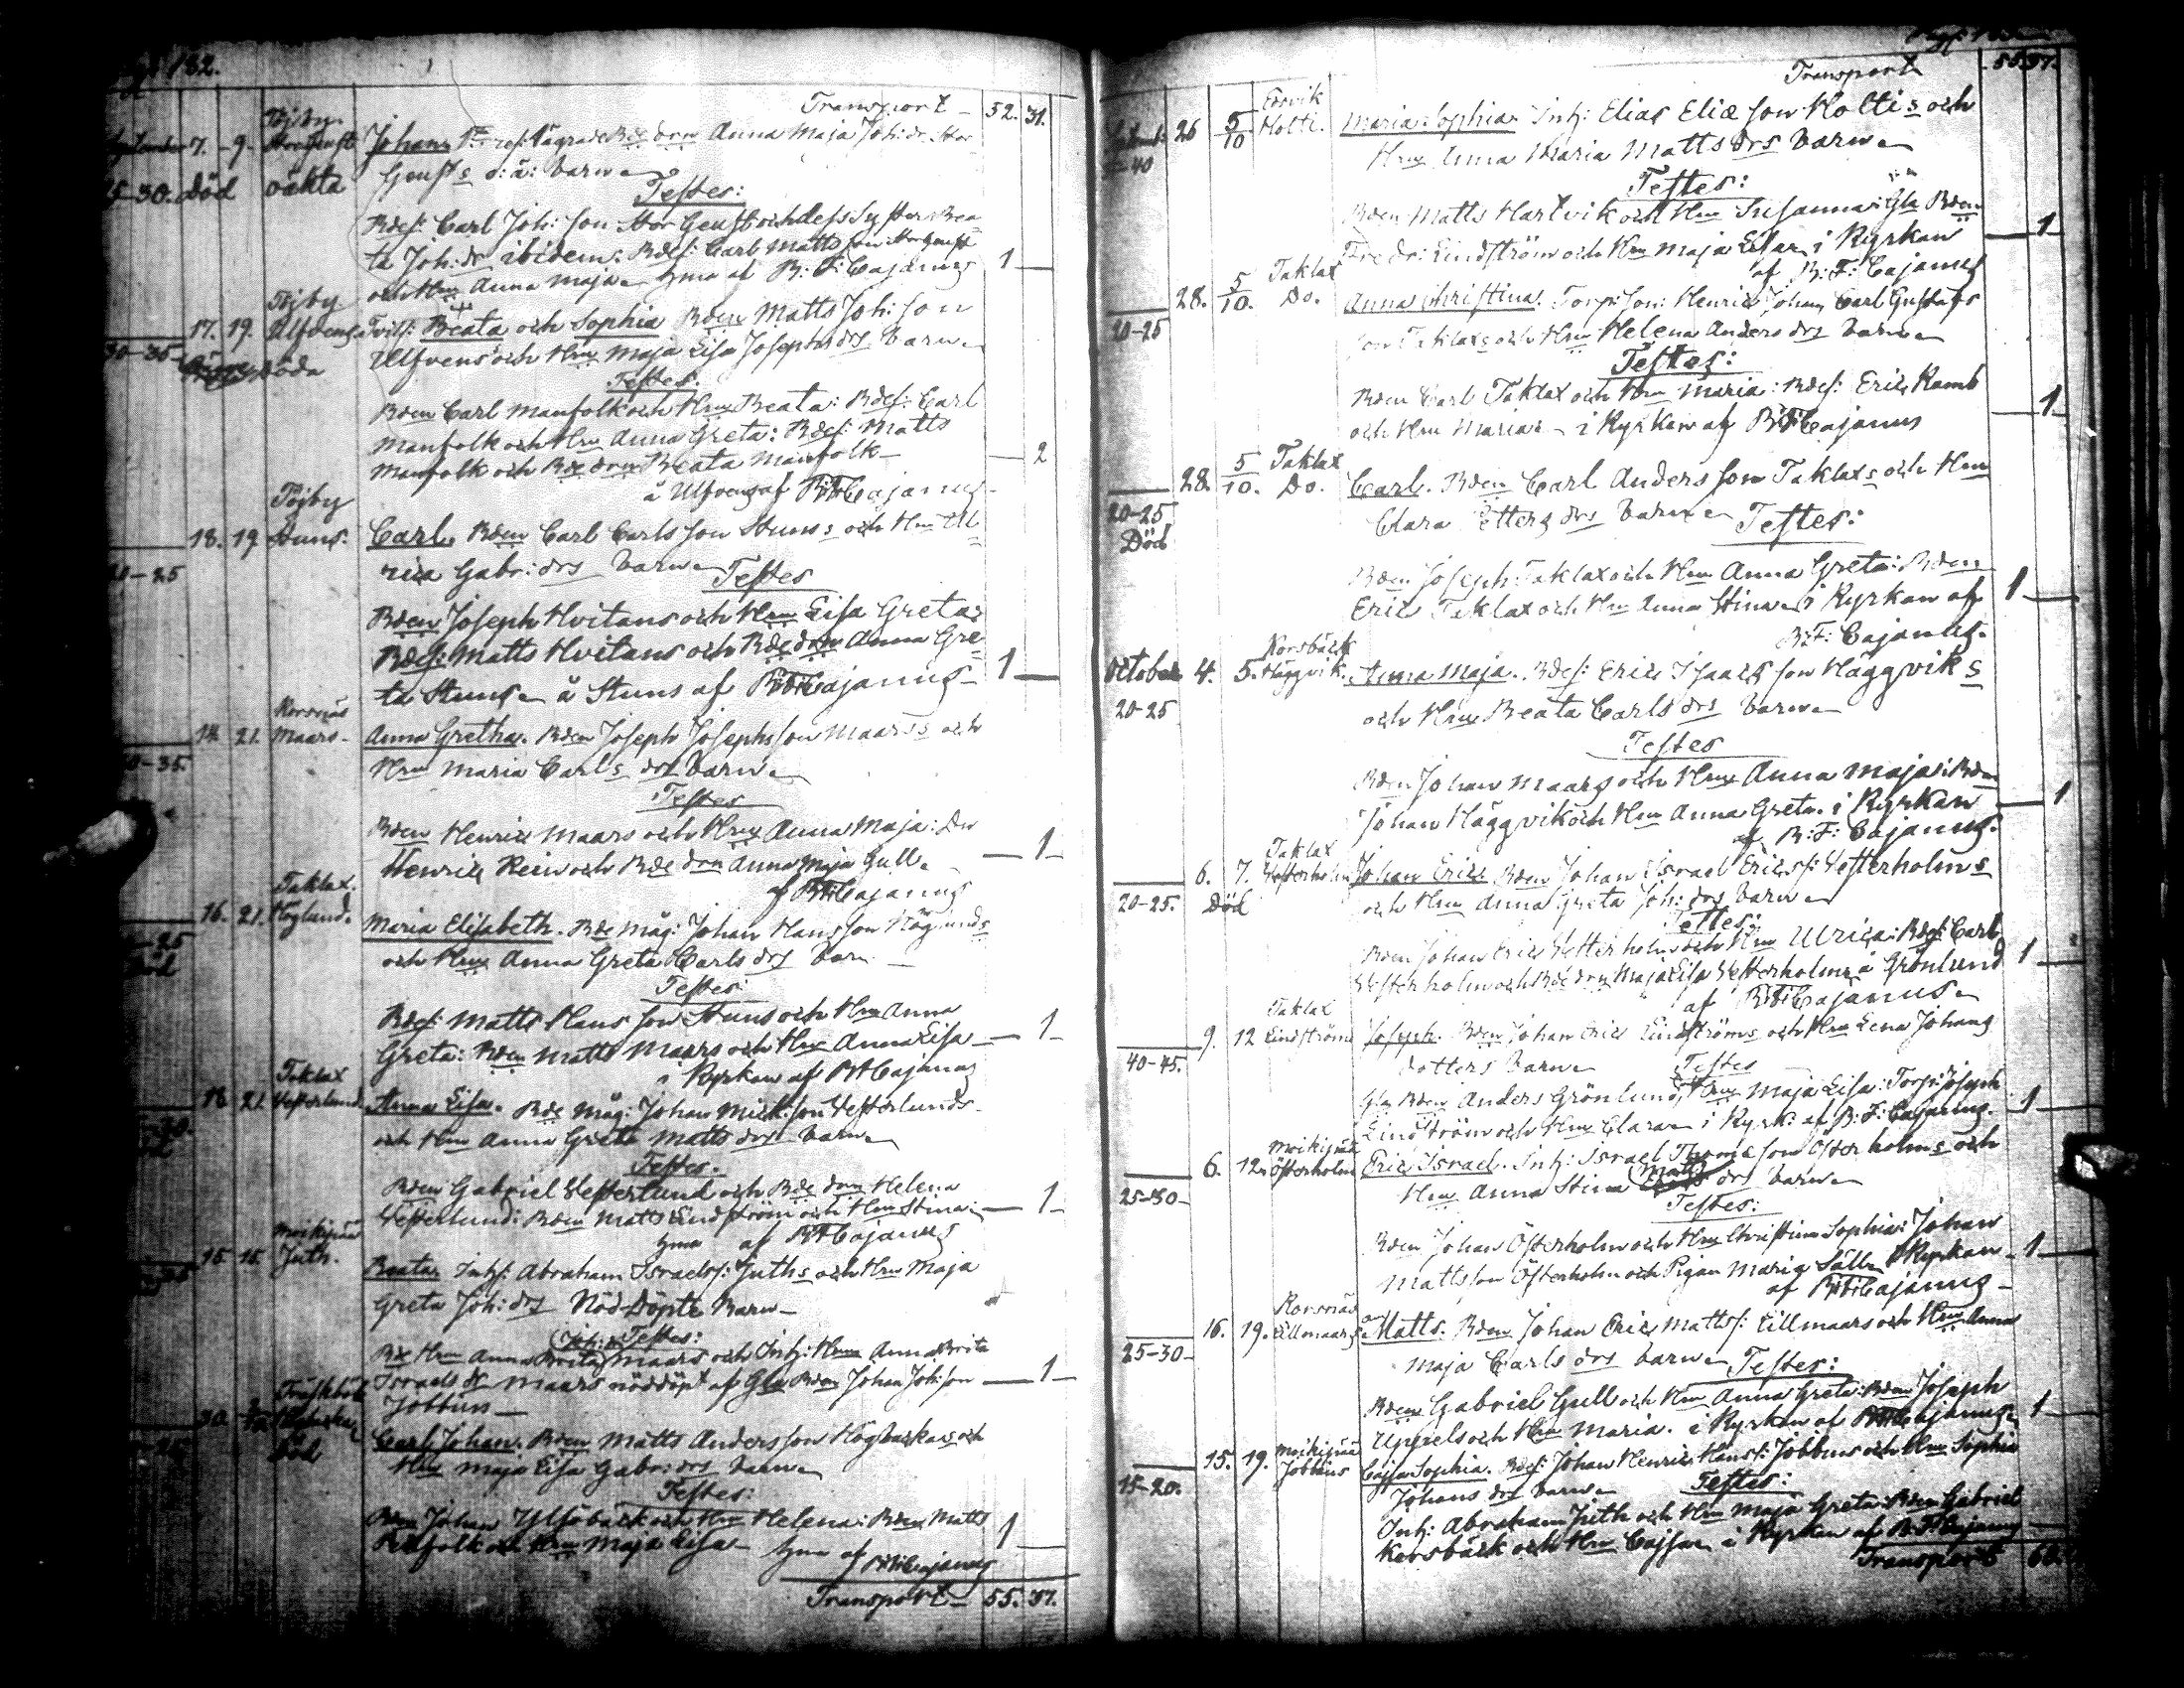 182.
Transport 52. 31.
7. 9. Töjby
25-30. Död oäkta
Johan Anna Maja Joh: dr Stor
Genst s o: ä: barn
Testes:
Bdes: Carl Joh: son Stor Genst och dess Syster Bea
ta Joh: dr ibidem: Bdes: Carl Matts son Storgenst
och Hru Anna Maja hma af B: F: Cajanus 1
Töjby
17. 19. Ulfvens Tvill: Beata och Sophia Bden Matts Joh: son
30-35 döda Ulfvens och Hru Maja Lisa Josephs drs barn
Testes.
Bden Carl Manfolk och Hru Beata: Bdes: Carl
Manfolk och Hru Anna Greta: Bdes: Matts
Manfolk och Bde drn Beata Manfolk 2
å Ulfvens af B: F: Cajanus
Töjby
18. 19 Stuns. Carl. Bden Carl Carls son Stuns s och Hru Ul
20-25 rica Gabr: drs barn
Testes
Bden Joseph Hvitans och Hru Lisa Greta:
Bdes: Matts Hvitans och Bde drn Anna Gre
ta Stuns å Stuns af B: F: Cajanus 1
Korsnäs
21. Maars Anna Gretha. Bden Joseph Josephs son Maars s och
30-35. Hru Maria Carls drs barn
Testes
Bden Henric Maars och Hru Anna Maja: Dr
Henric Rein och Bde drn Anna Maja Gull. 1
af B: F: Cajanus
Taklax.
16. 21. Höglund. Maria Elisabeth. Bde Måg: Johan Hans son Höglunds
25 Död och Hru Anna Greta Carls drs barn
Testes:
Bdes: Matts Hans son Stuns och Hru Anna
Greta: Bden Matts Maars och Hru Anna Lisa 1
i Kyrkan af B: F: Cajanus
Taklax
18. 21. Vesterlund Anna Lisa. Bde Måg: Johan Mick: son Vesterlunds
och Hru Anna Greta Matts drs barn
Testes.
Bden Gabriel Vesterlund och Bde drn Helena
Vesterlund: Bden Matts Lindström och Hru Stina: 1
hma af B: F: Cajanus
Moikipää
15. 15. Juth. Beata Inhs: Abraham Israels: Juths och Hru Maja
Greta Joh: drs Nöd-Döpte Barn
Testes:
Bde Hru Anna Brita Maars och Inh: Hru Anna Brita
Israels dr Maars nöddöpt af Gla Bden Johan Joh: son 1
Jobbus
Träskböle
30. Död Carl Johan. Bden Matts Anders son Högbacka s och
Hru Maja Lisa Gabr: drs barn
Testes:
Bden Johan Ylföback och Hru Helena: Bden Matts 1
Manfolk och Hru Maja Lisa hma af B: F: Cajanus
Transport 55. 37.
Transport 55 37.
26 5/10 Edsvik Holti. Maria Sophia Inh: Elias Eliæ son Holti s och
40 Hru Anna Maria Matts drs barn
Testes:
Bden Matts Hartvik och Hru Susanna: Gla Bden
Fredr: Lindström och Hru Maja Lisa i Kyrkan 1
af B: F: Cajanus
28. 5/10. Taklax Do. Anna Christina. Torp: son: Henric Johan Carl Gustafs
20-25 son Taklax s och Hru Helena Anders drs barn
Testes:
Bden Carl Taklax och Hru Maria: Bdes: Eric Ramb
och Hru Maria i Kyrkan af B: F: Cajanus 1
28. 5/10. Taklax Do. Carl. Bden Carl Anders son Taklax s och Hru
20-25 Död Clara Etters drs barn Testes:
Bden Joseph Taklax och Hru Anna Greta: Bden
Eric Taklax och Hru Anna Stina i Kyrkan af 1
B: F: Cajanus.
October 4. 5. Korsbäck Häggvik. Anna Maja. Bdes: Eric Isaacs son Häggvik s
20-25 och Hru Beata Carls drs barn
Testes
Bden Johan Maars och Hru Anna Maja: Bden
Johan Häggvik och Hru Anna Greta i Kyrkan 1
af B: F: Cajanus.
Taklax
6. 7. Vesterholm Johan Eric Bden Johan Israel Erics s: Vesterholm s
20-25. Död och Hru Anna Greta Joh: drs barn
Testes:
Bden Johan Eric Vesterholm och Hru Ulrica: Bdes: Carl
Vesterholm och Bde drn Maja Lisa Vesterholm å Grönlund 1
af B: F: Cajanus
Taklax
9. 12 Lindström Joseph. Bden Johan Eric Lindströms och Hru Lena Johans
40-45. dotters barn Testes
Gla Bden Anders Grönlund, Hru Maja Lisa: Torp: Joseph
Lindström och Hru Clara i Kyrk: af B: F: Cajanus. 1
Moikipää
6. 12. Österholm Eric Israel. Inh: Israel Thomæ son Österholm s och
25-30 Hru Anna Stina Matts drs barn
Testes:
Bden Johan Österholm och Hru Christina Sophia: Johan
Matts son Österholm och Pigan Maria Säll i Kyrkan 1
af B: F: Cajanus
Korsnäs
16. 19. Lillmaars Matts. Bden Johan Eric Matts s: Lillmaars och Hru Anna
25-30 Maja Carls drs barn Testes:
Bden Gabriel Gull och Hru Anna Greta: Bden Joseph
Uppels och Hru Maria. i Kyrkan af B: F: Cajanus 1
15. 19. Moikipää Jobbus Cajsa Sophia. Bdes: Johan Henric Hans s: Jobbus och Hru Sophia
15-20. Johans drs barn Testes:
Inh: Abraham Juth och Hru Maja Greta: Bden Gabriel
Korsbäck och Hru Cajsa i Kyrkan af B: F: Cajanus
Transport